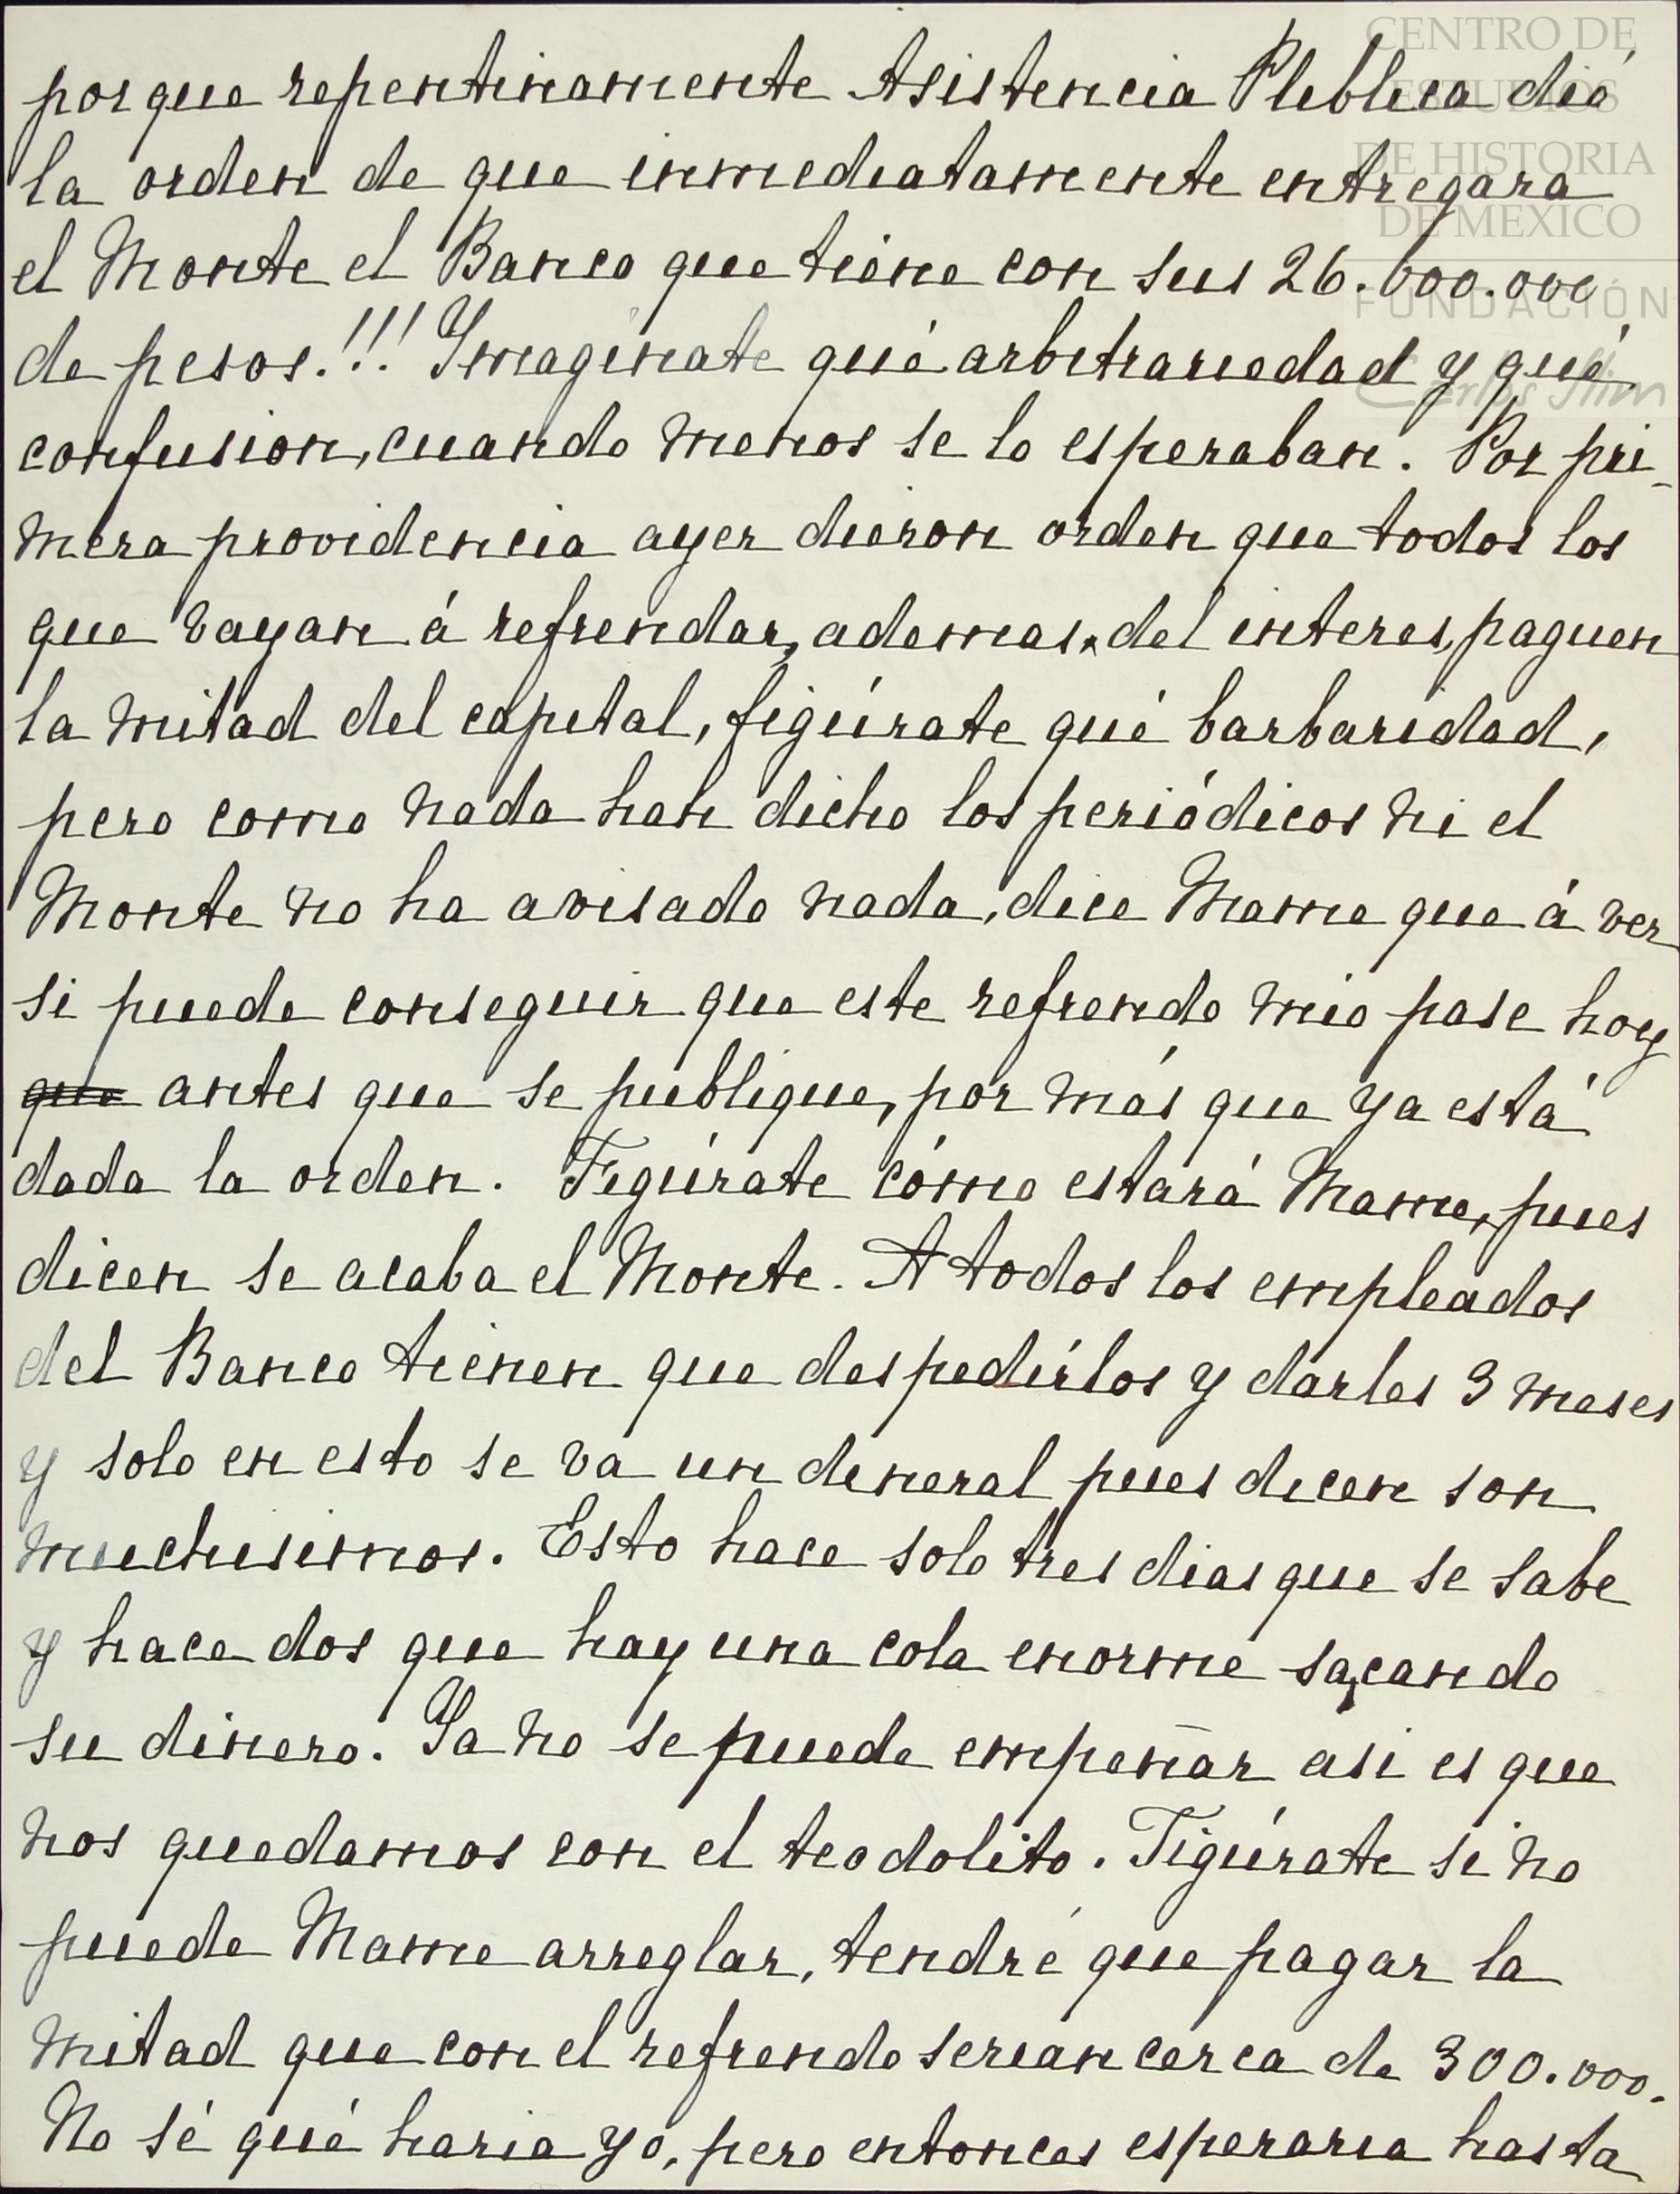 CENTRO DE
ESTUDIOS
DE HISTORIA
DE MEXICO
FUNDACIÓN
Carlos Slim
porque repentinamente Asistencia Pública dió
la orden de que inmediatamente entregara
el Monte el Banco que tiene con sus 26.000.000
de pesos.!!! Ymagínate qué arbitrariedad y qué
confusion, cuando menos se lo esperaban. Por pri-
mera providencia ayer dieron orden que todos los
que vayan á refrendar, ademas, del interes, paguen
la mitad del capital, figúrate qué barbaridad,
pero como nada han dicho los periódicos ni el
Monte no ha avisado nada, dice Mame que á ver
si puede conseguir que este refrendo mio pase hoy
que antes que se publique, por más que ya está
dada la orden. Figúrate cómo estará Mame, pues
dicen se acaba el Monte. A todos los empleados
del Banco tienen que despedirlos y darles 3 meses
y solo en esto se va un dineral pues dicen son
muchisimos. Esto hace solo tres dias que se sabe
y hace dos que hay una cola enorme sacando
su dinero. Ya no se puede empeñar asi es que
nos quedamos con el teodolito. Figúrate si no
puede Mame arreglar, tendré que pagar la
mitad que con el refrendo serian cerca de 300.000.
No sé qué haria yo, pero entonces esperaria hasta